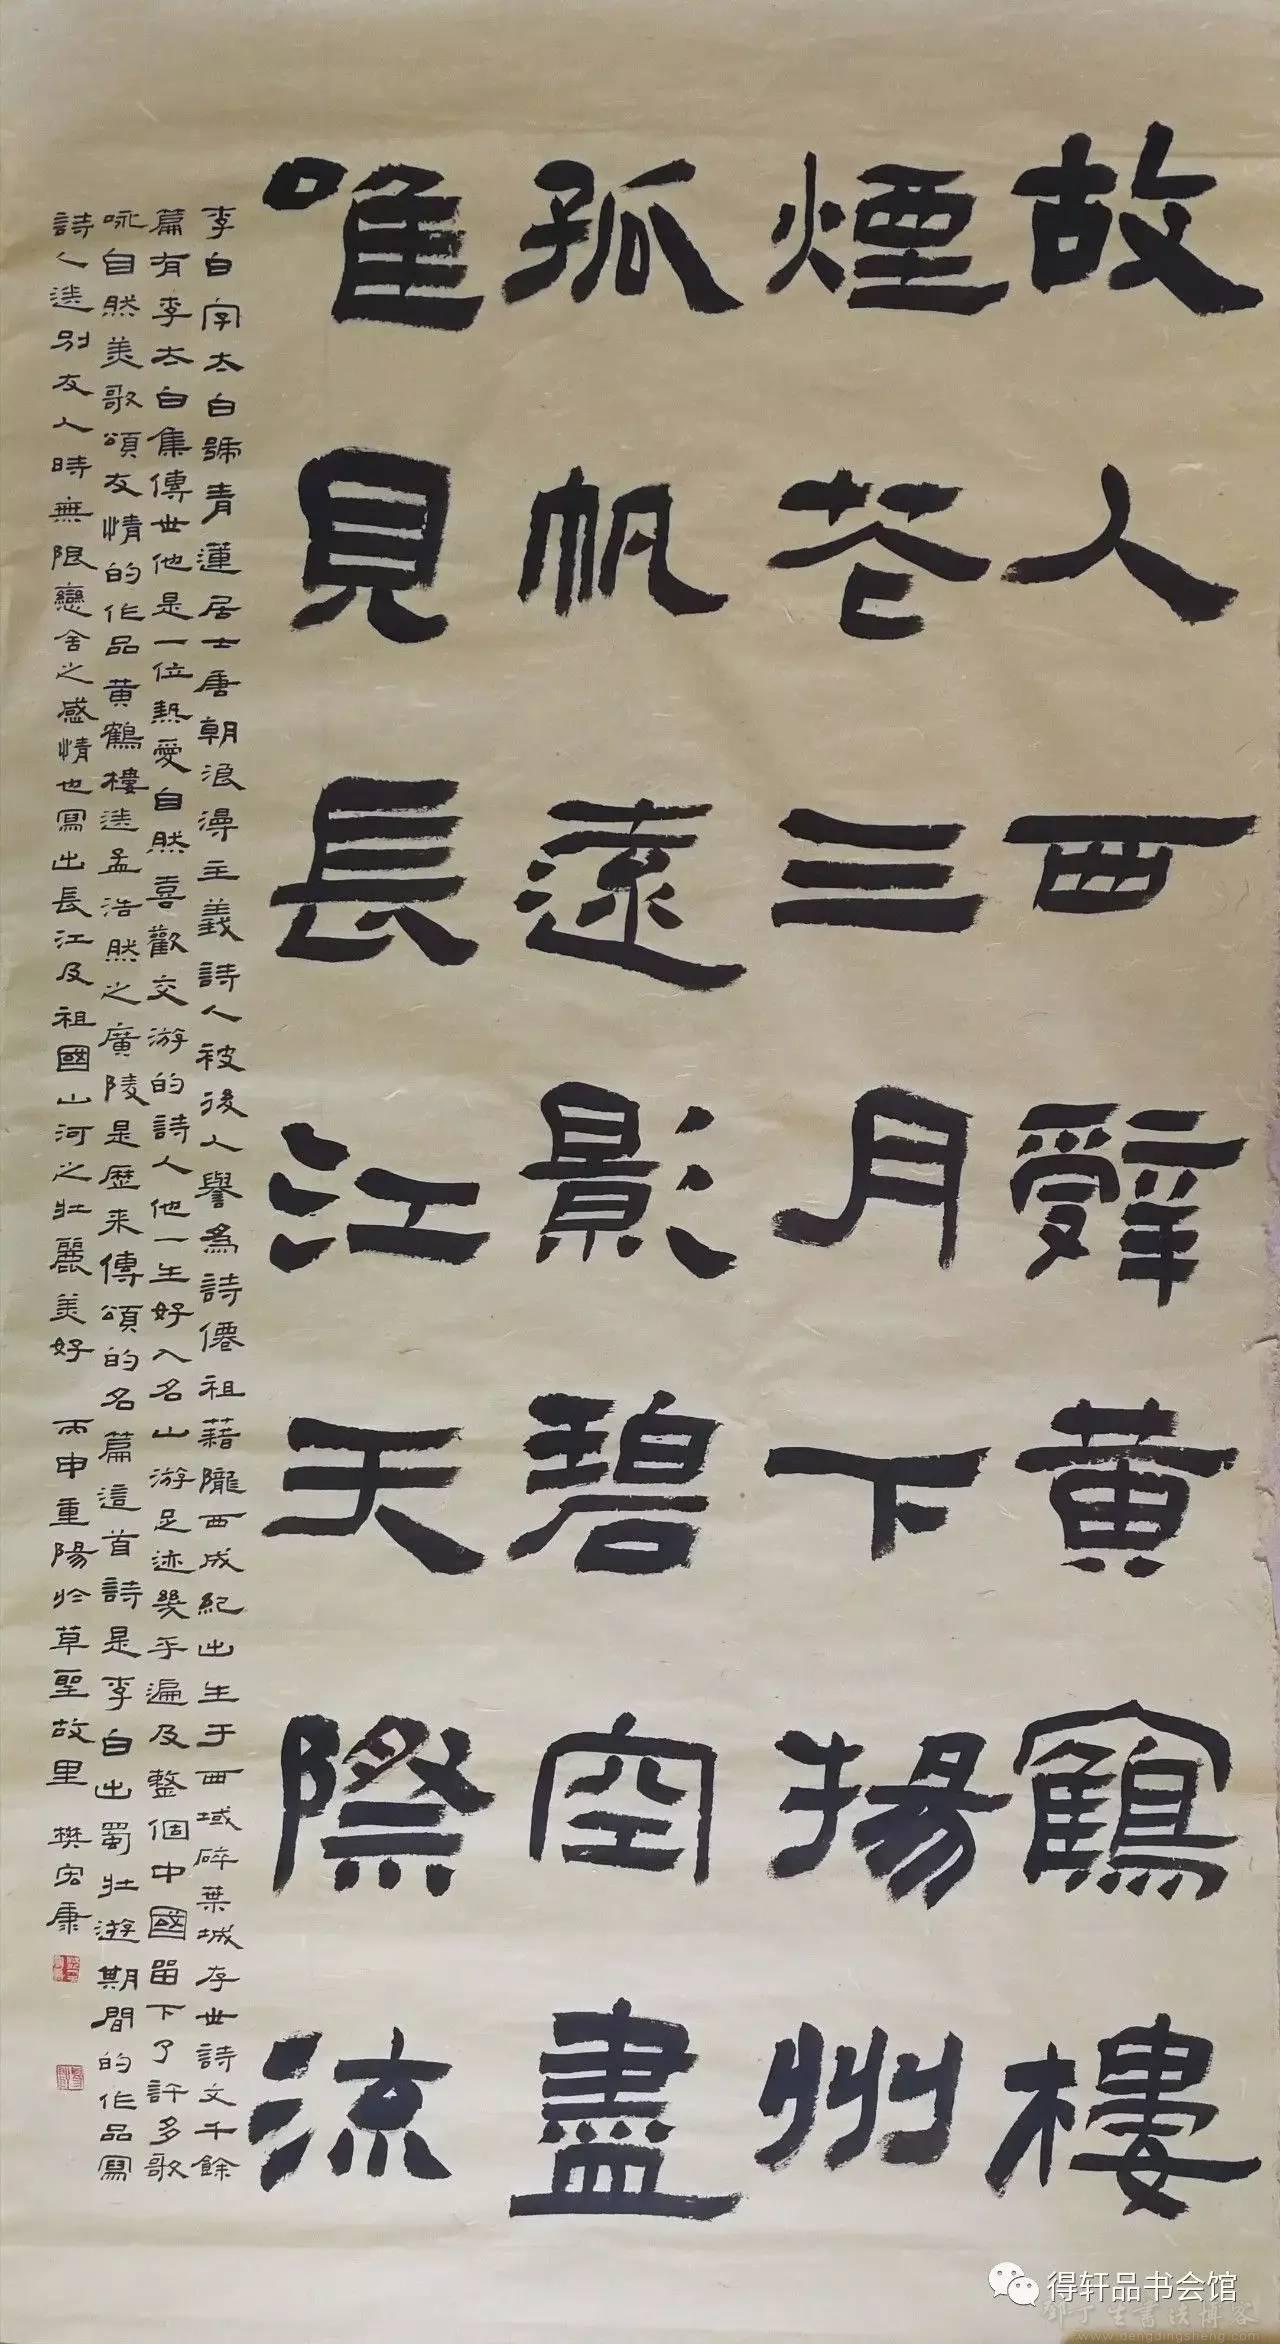 故人西辭黄鶴樓
煙花三月下揚州
孤帆遠影碧空盡
唯見長江天際流
李白字太白號青蓮居士唐朝浪漫主義詩人被後人譽為詩僊祖藉隴西成紀出生于西域碎葉城存世詩文千餘
篇有李太白集傳世他是一位熱愛自然喜歡交游的詩人他一生好入名山游足迹幾乎遍及整個中國留下了許多歌
咏自然美歌頌友情的作品黄鶴樓送孟浩然之廣陵是歷来傳頌的名篇這首詩是李白出蜀壮遊期間的作品寫
詩人送别友人時無限戀舍之感情也寫出長江及祖國山河之壮麗美好 丙申重陽於草聖故里 樊宏康
得轩品书会馆
邓丁生书法博客
www.dengdingsheng.com